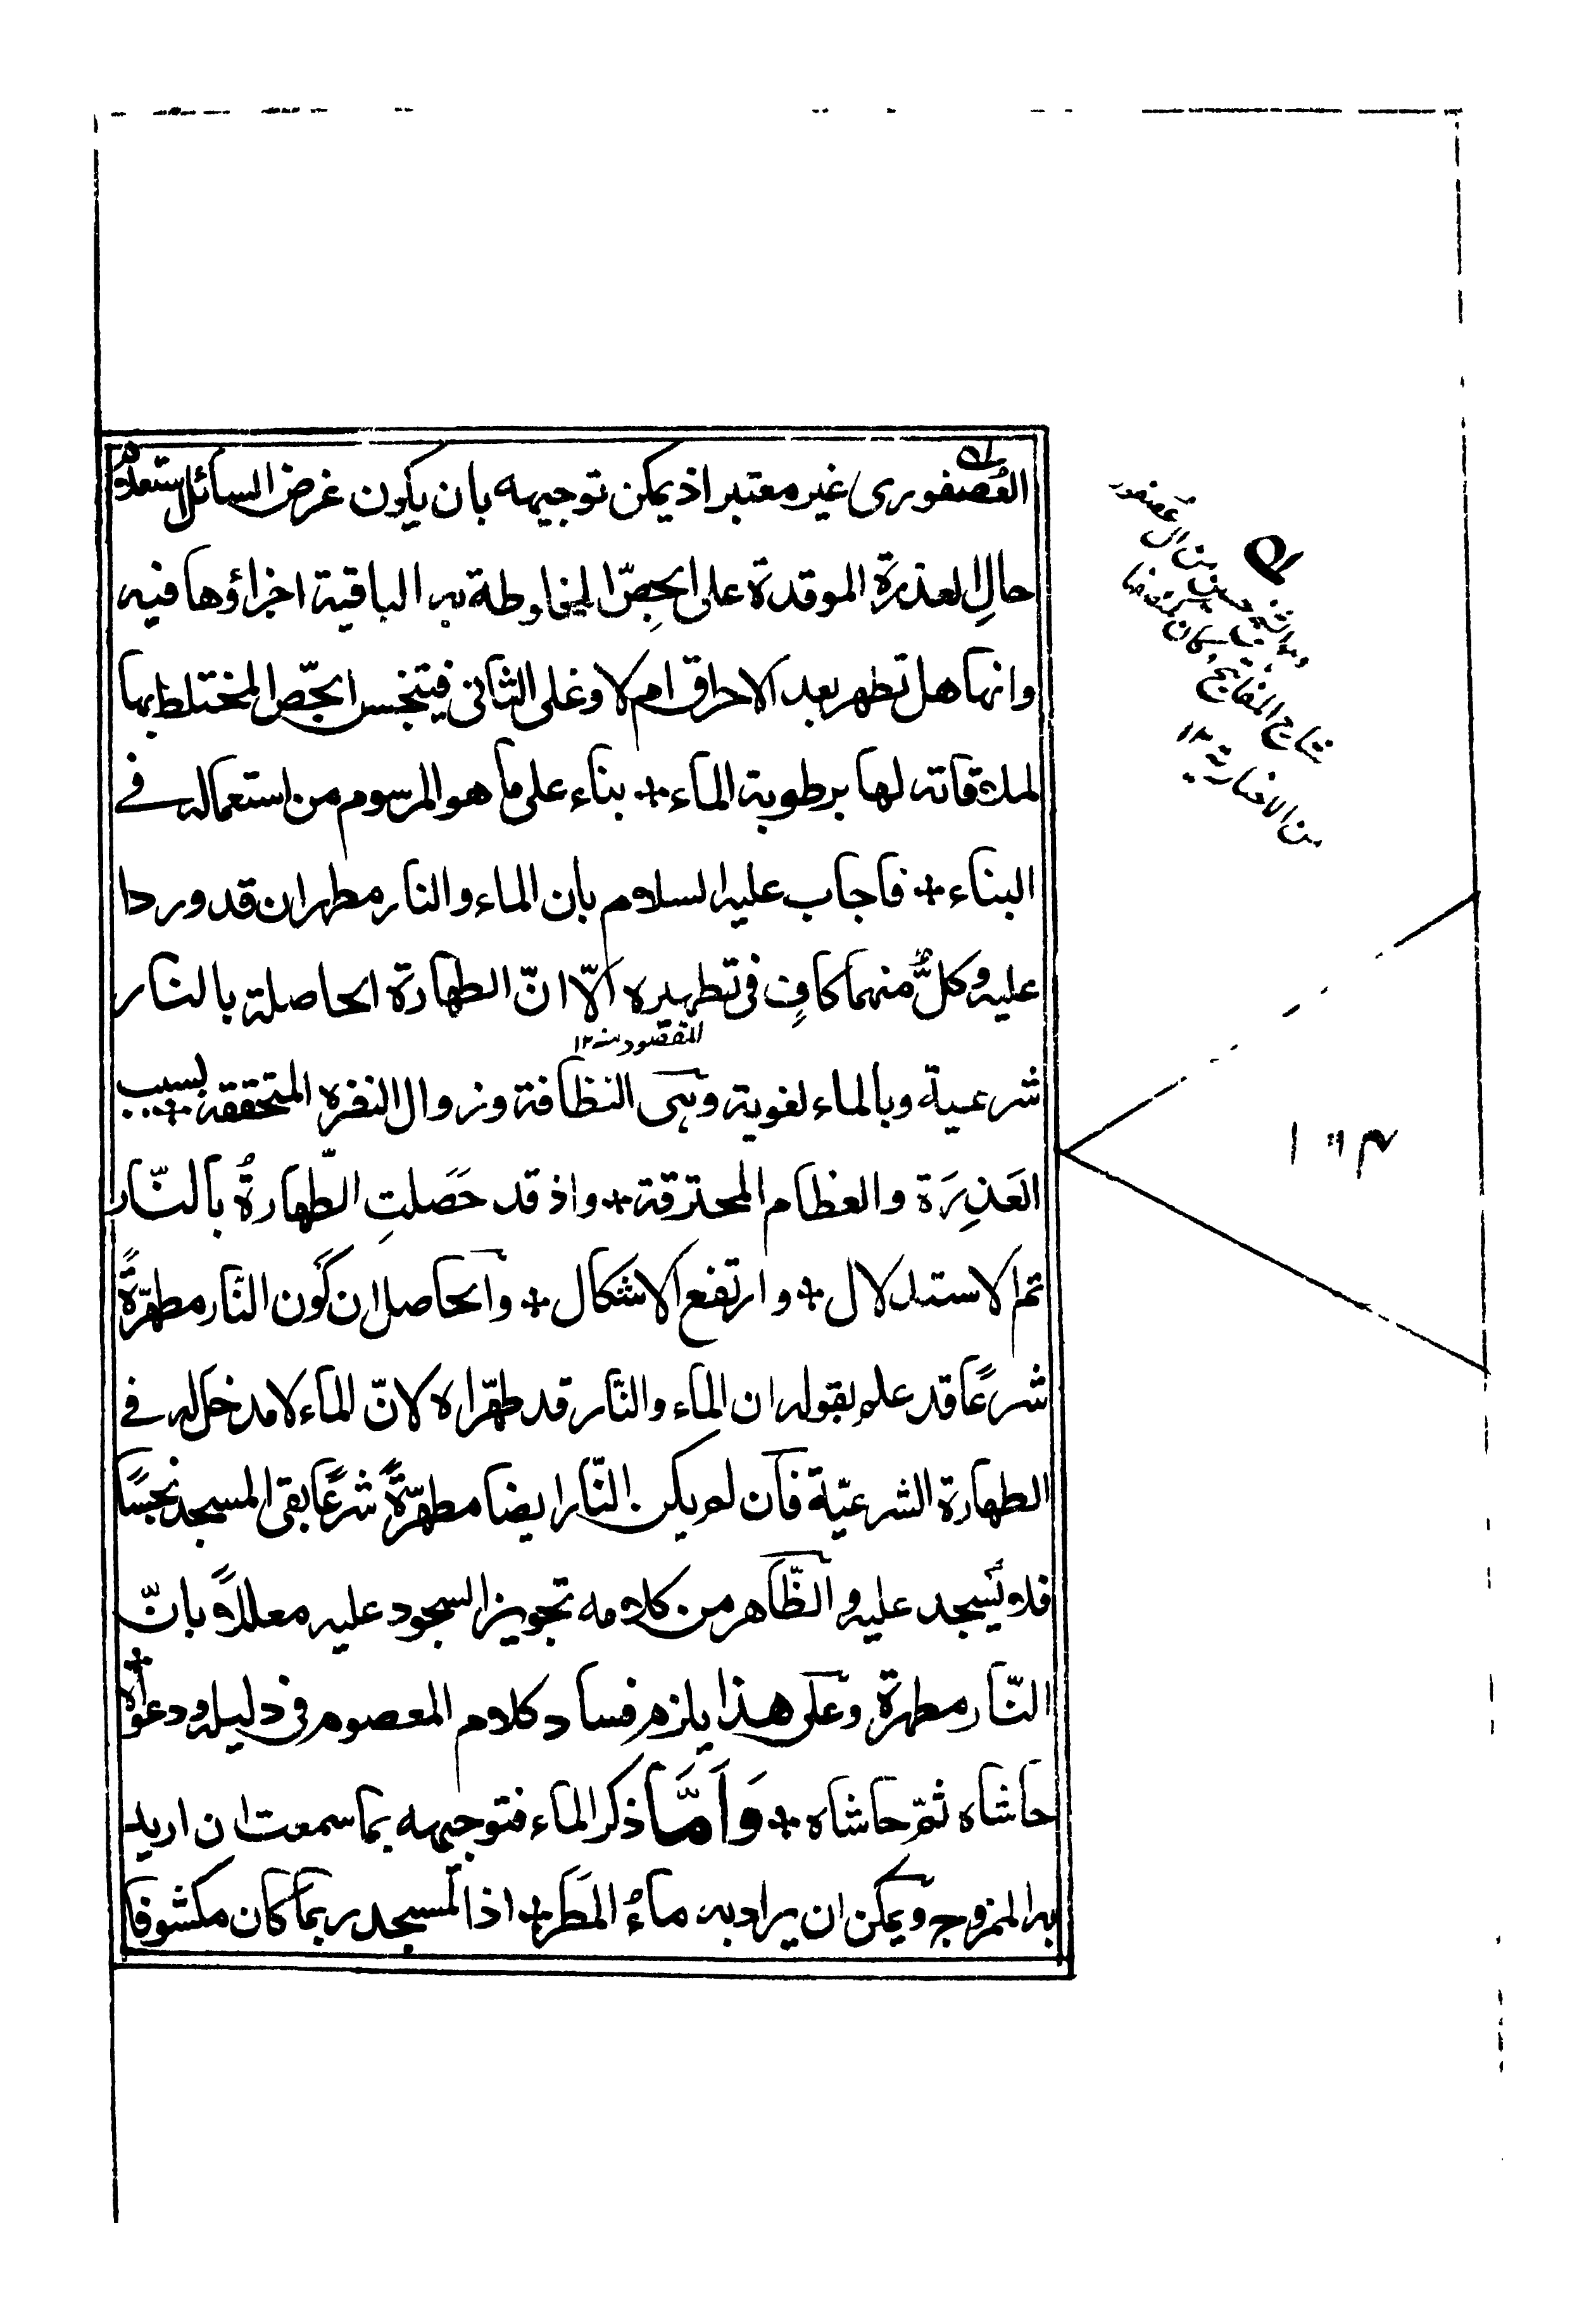 العُصفورى غير معتبر اذ يمكن توجيهه بان يكون غرض السائل استعلام
حالِ العذرة الموقدة على الجصّ المخلوطة به الباقية اجزاؤها فيه
وانها هل تطهر بعد الاحراق ام لا وعلى الثانى فيتنجس الجصّ المختلط بها
لملاقاته لها برطوبة الماء + بناء على ما هو المرسوم من استعماله فے
البناء + فاجاب عليه السلام بان الماء والنار مطهران قد وردا
عليه وكلٌّ منهما كافٍ فى تطهيره الّا انّ الطهارة الحاصلة بالنار
المقصود منه ١٢
شرعية وبالماء لغوية وهى النظافة وزوال النفره المتحققة بسبب +
العَذِرَة والعظام المحترقة + واذ قد حَصَلتِ الطّهارةُ بالنّار
تم الاستدلال + وارتفع الاشكال + والحاصل ان كَون النّار مطهّرةً
شرعًا قد علم بقوله ان الماء والنّار قد طهّراه لانّ الماء لا مدخل له فے
الطهارة الشرعيّة فان لم يكن النّار ايضا مطهّرةً شرعًا بقى المسجد نجسًا
فلا يَسجد عليه والظّاهر من كلامه تجويز السجود عليه معللاً بانّ
النّار مطهرة وعلى هذا يلزم فساد كلام المعصوم فى دليله ودعواه +
حاشاه ثمّ حاشاه + وَاَمَّا ذكر الماء فتوجيهه بما سمعت ان اريد
به الممزوج ويمكن ان يراد به ماءُ المَطَر + اذ المسجد ربما كان مكشوفا
وهو الشيخ حسين من آل عُصفور
شارح المفاتيح وكان
من الاخبارية ١٢